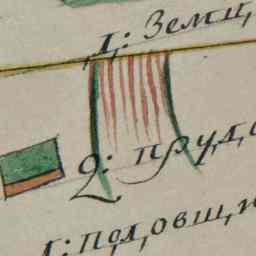 1: Земц,
2: пруд,
1: Подовщи